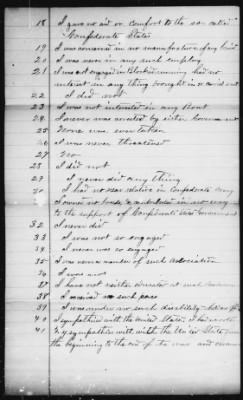 18 I gave no aid or comfort to the so-called
Confederate States
19 I was concerned in no manufacture of any kind
20 I was never in any such employ
21 I was not engaged in blockade running had no
interest in any thing brought in or carried out
22 I did not
23 I was not interested in any
24 I never was arrested by either Government
25 None was ever taken
26 I was never threatened
27 No
28 I did not
29 I never did any thing
30 I had no near relative in Confederate Army
I owned no bonds & contributed in no way
to the support of Confederate States Government
32 I never did
33 I was not so engaged
34 I never was so engaged
35 I was never a member of such Association
36 I was not
37 I have not neither directed
38 I received no such pass
39 I was under no such disability
40 I sympathised with the United States
41 My sympathies with the United States from
the beginning to the end of the war and